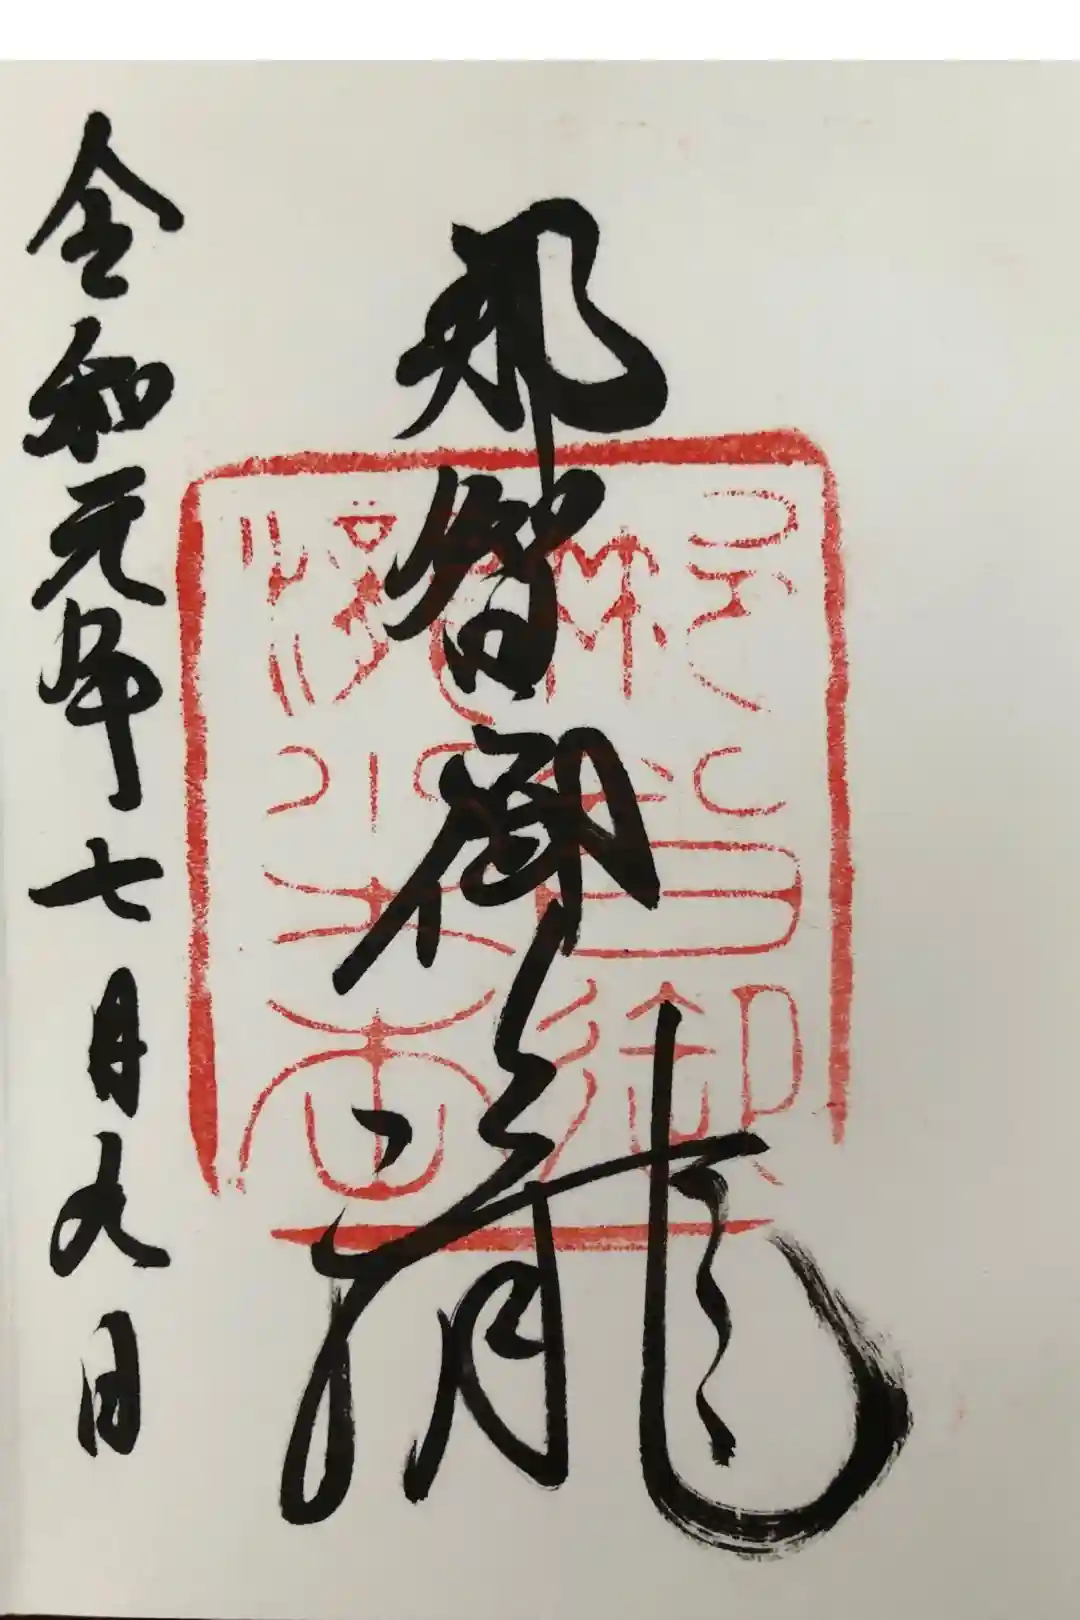 那智御瀧
令和元年七月九日